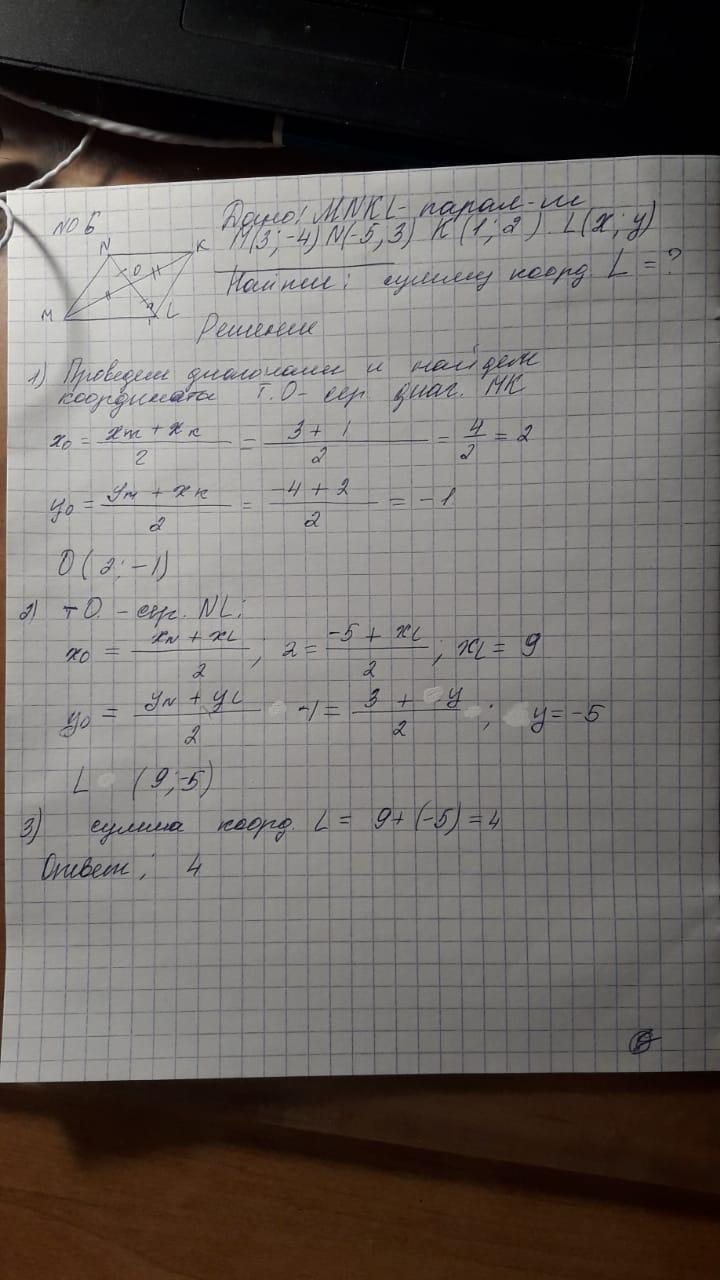 № 6
Дано: MNKL - парал-м
M(3; -4) N(-5, 3) K(1; 2). L(x; y)
Найти: сумму коорд L = ?
N K O M L ?
Решение
1) Проведем диагонали и найдем
координаты т.О - сер. диаг. MK
x₀ = (xm + xк)/2 = (3 + 1)/2 = 4/2 = 2
y₀ = (ym + xк)/2 = (-4 + 2)/2 = -1
O(2; -1)
2) т O. - сер. NL:
x₀ = (xN + xL)/2; 2 = (-5 + xL)/2; xL = 9
y₀ = (yN + yL)/2 -1 = (3 + y)/2; y = -5
L (9; -5)
3) сумма коорд. L = 9 + (-5) = 4
Ответ: 4